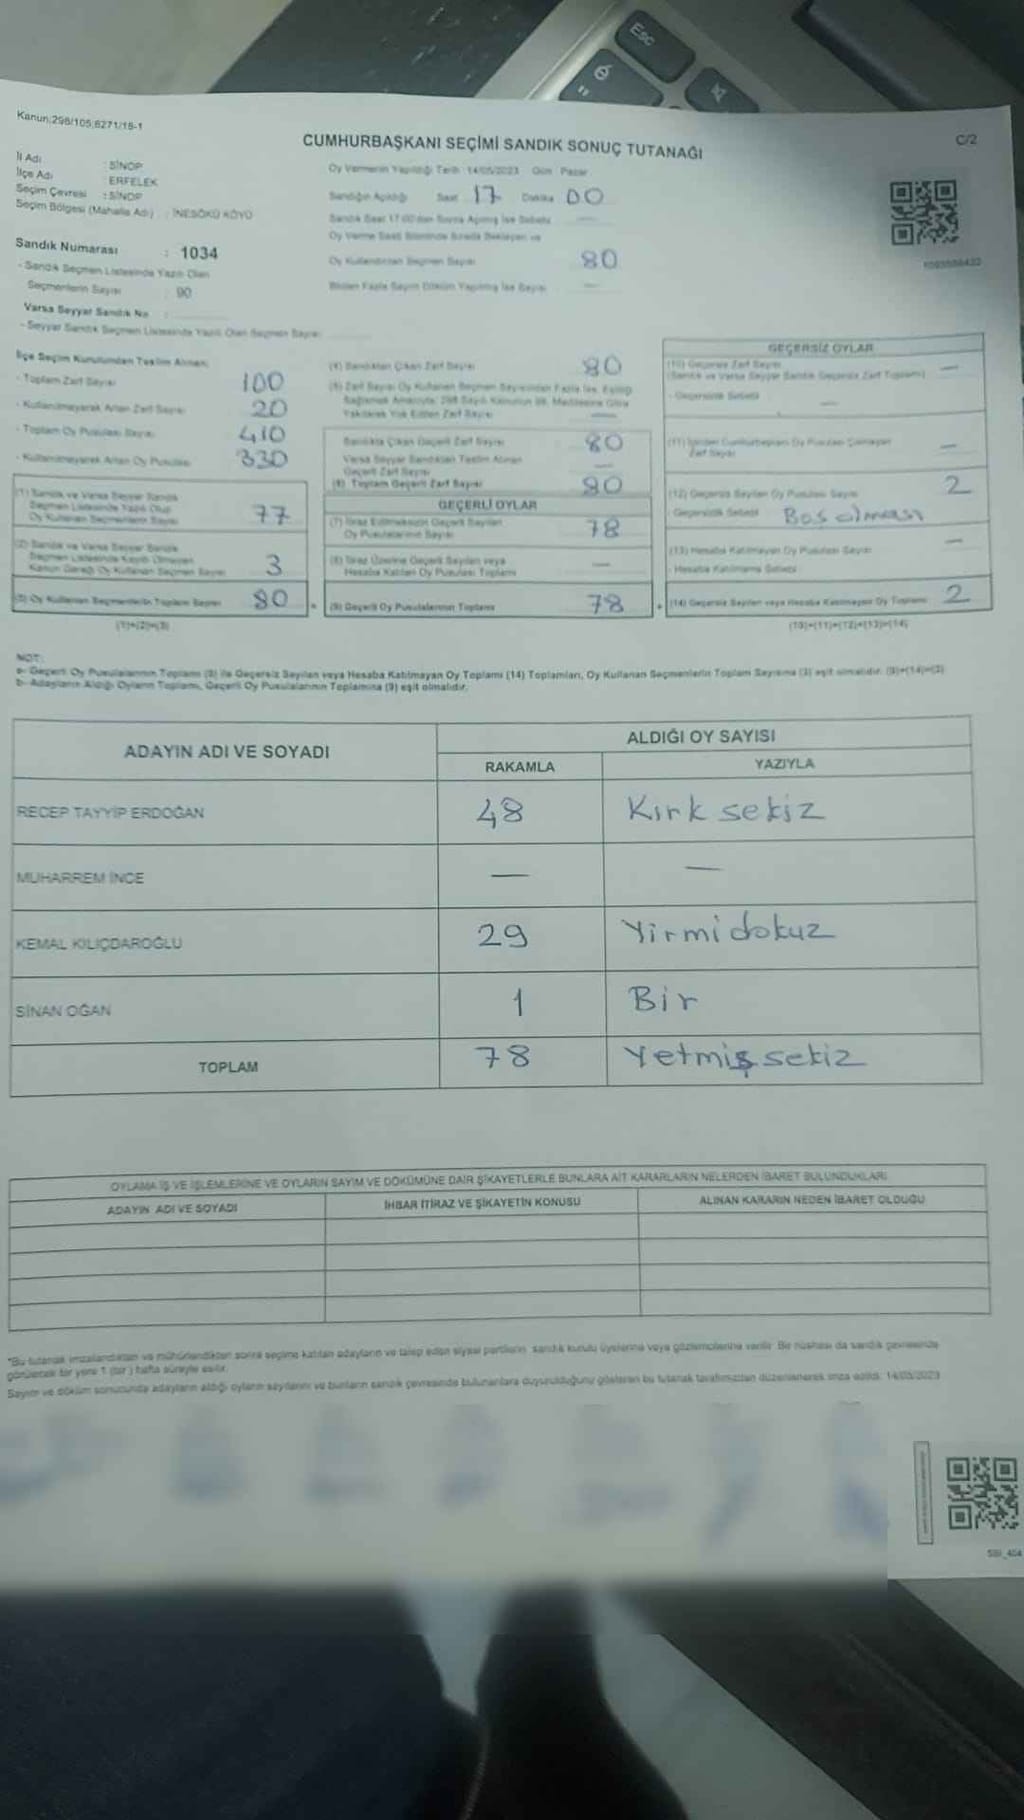 Esc
é
"
Kanun:298/105;6271/18-1
C/2
CUMHURBAŞKANI SEÇİMİ SANDIK SONUÇ TUTANAĞI
İl Adı : SİNOP
İlçe Adı : ERFELEK
Seçim Çevresi : SİNOP
Seçim Bölgesi (Mahalle Adı) : İNESÖKÜ KÖYÜ
Sandık Numarası : 1034
- Sandık Seçmen Listesinde Yazılı Olan
Seçmenlerin Sayısı : 90
Varsa Seyyar Sandık No :
- Seyyar Sandık Seçmen Listesinde Yazılı Olan Seçmen Sayısı
Oy Vermenin Yapıldığı Tarih 14/05/2023 Gün Pazar
Sandığın Açıldığı Saat 17 Dakika 00
Sandık Saat 17:00'den Sonra Açılmış İse Sebebi —
Oy Verme Saati Bitiminde Sırada Bekleyen ve
Oy Kullandırılan Seçmen Sayısı 80
Birden Fazla Sayım Döküm Yapılmış İse Sayısı —
İlçe Seçim Kurulundan Teslim Alınan;
- Toplam Zarf Sayısı 100
- Kullanılmayarak Artan Zarf Sayısı 20
- Toplam Oy Pusulası Sayısı 410
- Kullanılmayarak Artan Oy Pusulası 330
(1) Sandık ve Varsa Seyyar Sandık
Seçmen Listesinde Yazılı Olup
Oy Kullanan Seçmenlerin Sayısı 77
(2) Sandık ve Varsa Seyyar Sandık
Seçmen Listesinde Kayıtlı Olmayan
Kanun Gereği Oy Kullanan Seçmen Sayısı 3
(3) Oy Kullanan Seçmenlerin Toplam Sayısı 80
(1)+(2)=(3)
(4) Sandıktan Çıkan Zarf Sayısı 80
(5) Zarf Sayısı Oy Kullanan Seçmen Sayısından Fazla İse, Eşitliği
Sağlamak Amacıyla; 298 Sayılı Kanunun 98. Maddesine Göre
Yakılarak Yok Edilen Zarf Sayısı —
Sandıkta Çıkan Geçerli Zarf Sayısı 80
Varsa Seyyar Sandıktan Teslim Alınan
Geçerli Zarf Sayısı —
(6) Toplam Geçerli Zarf Sayısı 80
GEÇERLİ OYLAR
(7) İtiraz Edilmeksizin Geçerli Sayılan
Oy Pusulalarının Sayısı 78
(8) İtiraz Üzerine Geçerli Sayılan veya
Hesaba Katılan Oy Pusulası Toplamı —
(9) Geçerli Oy Pusulalarının Toplamı 78
GEÇERSİZ OYLAR
(10) Geçersiz Zarf Sayısı
(Sandık ve Varsa Seyyar Sandık Geçersiz Zarf Toplamı) —
- Geçersizlik Sebebi —
(11) İçinden Cumhurbaşkanı Oy Pusulası Çıkmayan
Zarf Sayısı —
(12) Geçersiz Sayılan Oy Pusulası Sayısı 2
- Geçersizlik Sebebi Boş olması
(13) Hesaba Katılmayan Oy Pusulası Sayısı —
- Hesaba Katılmama Sebebi
(14) Geçersiz Sayılan veya Hesaba Katılmayan Oy Toplamı 2
(10)+(11)+(12)+(13)=(14)
NOT:
a- Geçerli Oy Pusulalarının Toplamı (9) ile Geçersiz Sayılan veya Hesaba Katılmayan Oy Toplamı (14) Toplamları, Oy Kullanan Seçmenlerin Toplam Sayısına (3) eşit olmalıdır. (9)+(14)=(3)
b- Adayların Aldığı Oyların Toplamı, Geçerli Oy Pusulalarının Toplamına (9) eşit olmalıdır.
ADAYIN ADI VE SOYADI
ALDIĞI OY SAYISI
RAKAMLA YAZIYLA
RECEP TAYYİP ERDOĞAN 48 Kırk sekiz
MUHARREM İNCE — —
KEMAL KILIÇDAROĞLU 29 Yirmi dokuz
SİNAN OĞAN 1 Bir
TOPLAM 78 Yetmiş sekiz
OYLAMA İŞ VE İŞLEMLERİNE VE OYLARIN SAYIM VE DÖKÜMÜNE DAİR ŞİKAYETLERLE BUNLARA AİT KARARLARIN NELERDEN İBARET BULUNDUKLARI
ADAYIN ADI VE SOYADI İHBAR İTİRAZ VE ŞİKAYETİN KONUSU ALINAN KARARIN NEDEN İBARET OLDUĞU
*Bu tutanak imzalandıktan ve mühürlendikten sonra seçime katılan adayların ve talep eden siyasi partilerin sandık kurulu üyelerine veya gözlemcilerine verilir. Bir nüshası da sandık çevresinde
görülecek bir yere 1 (bir) hafta süreyle asılır.
Sayım ve döküm sonucunda adayların aldığı oyların sayılarını ve bunların sandık çevresinde bulunanlara duyurulduğunu gösteren bu tutanak tarafımızdan düzenlenerek imza edildi. 14/05/2023